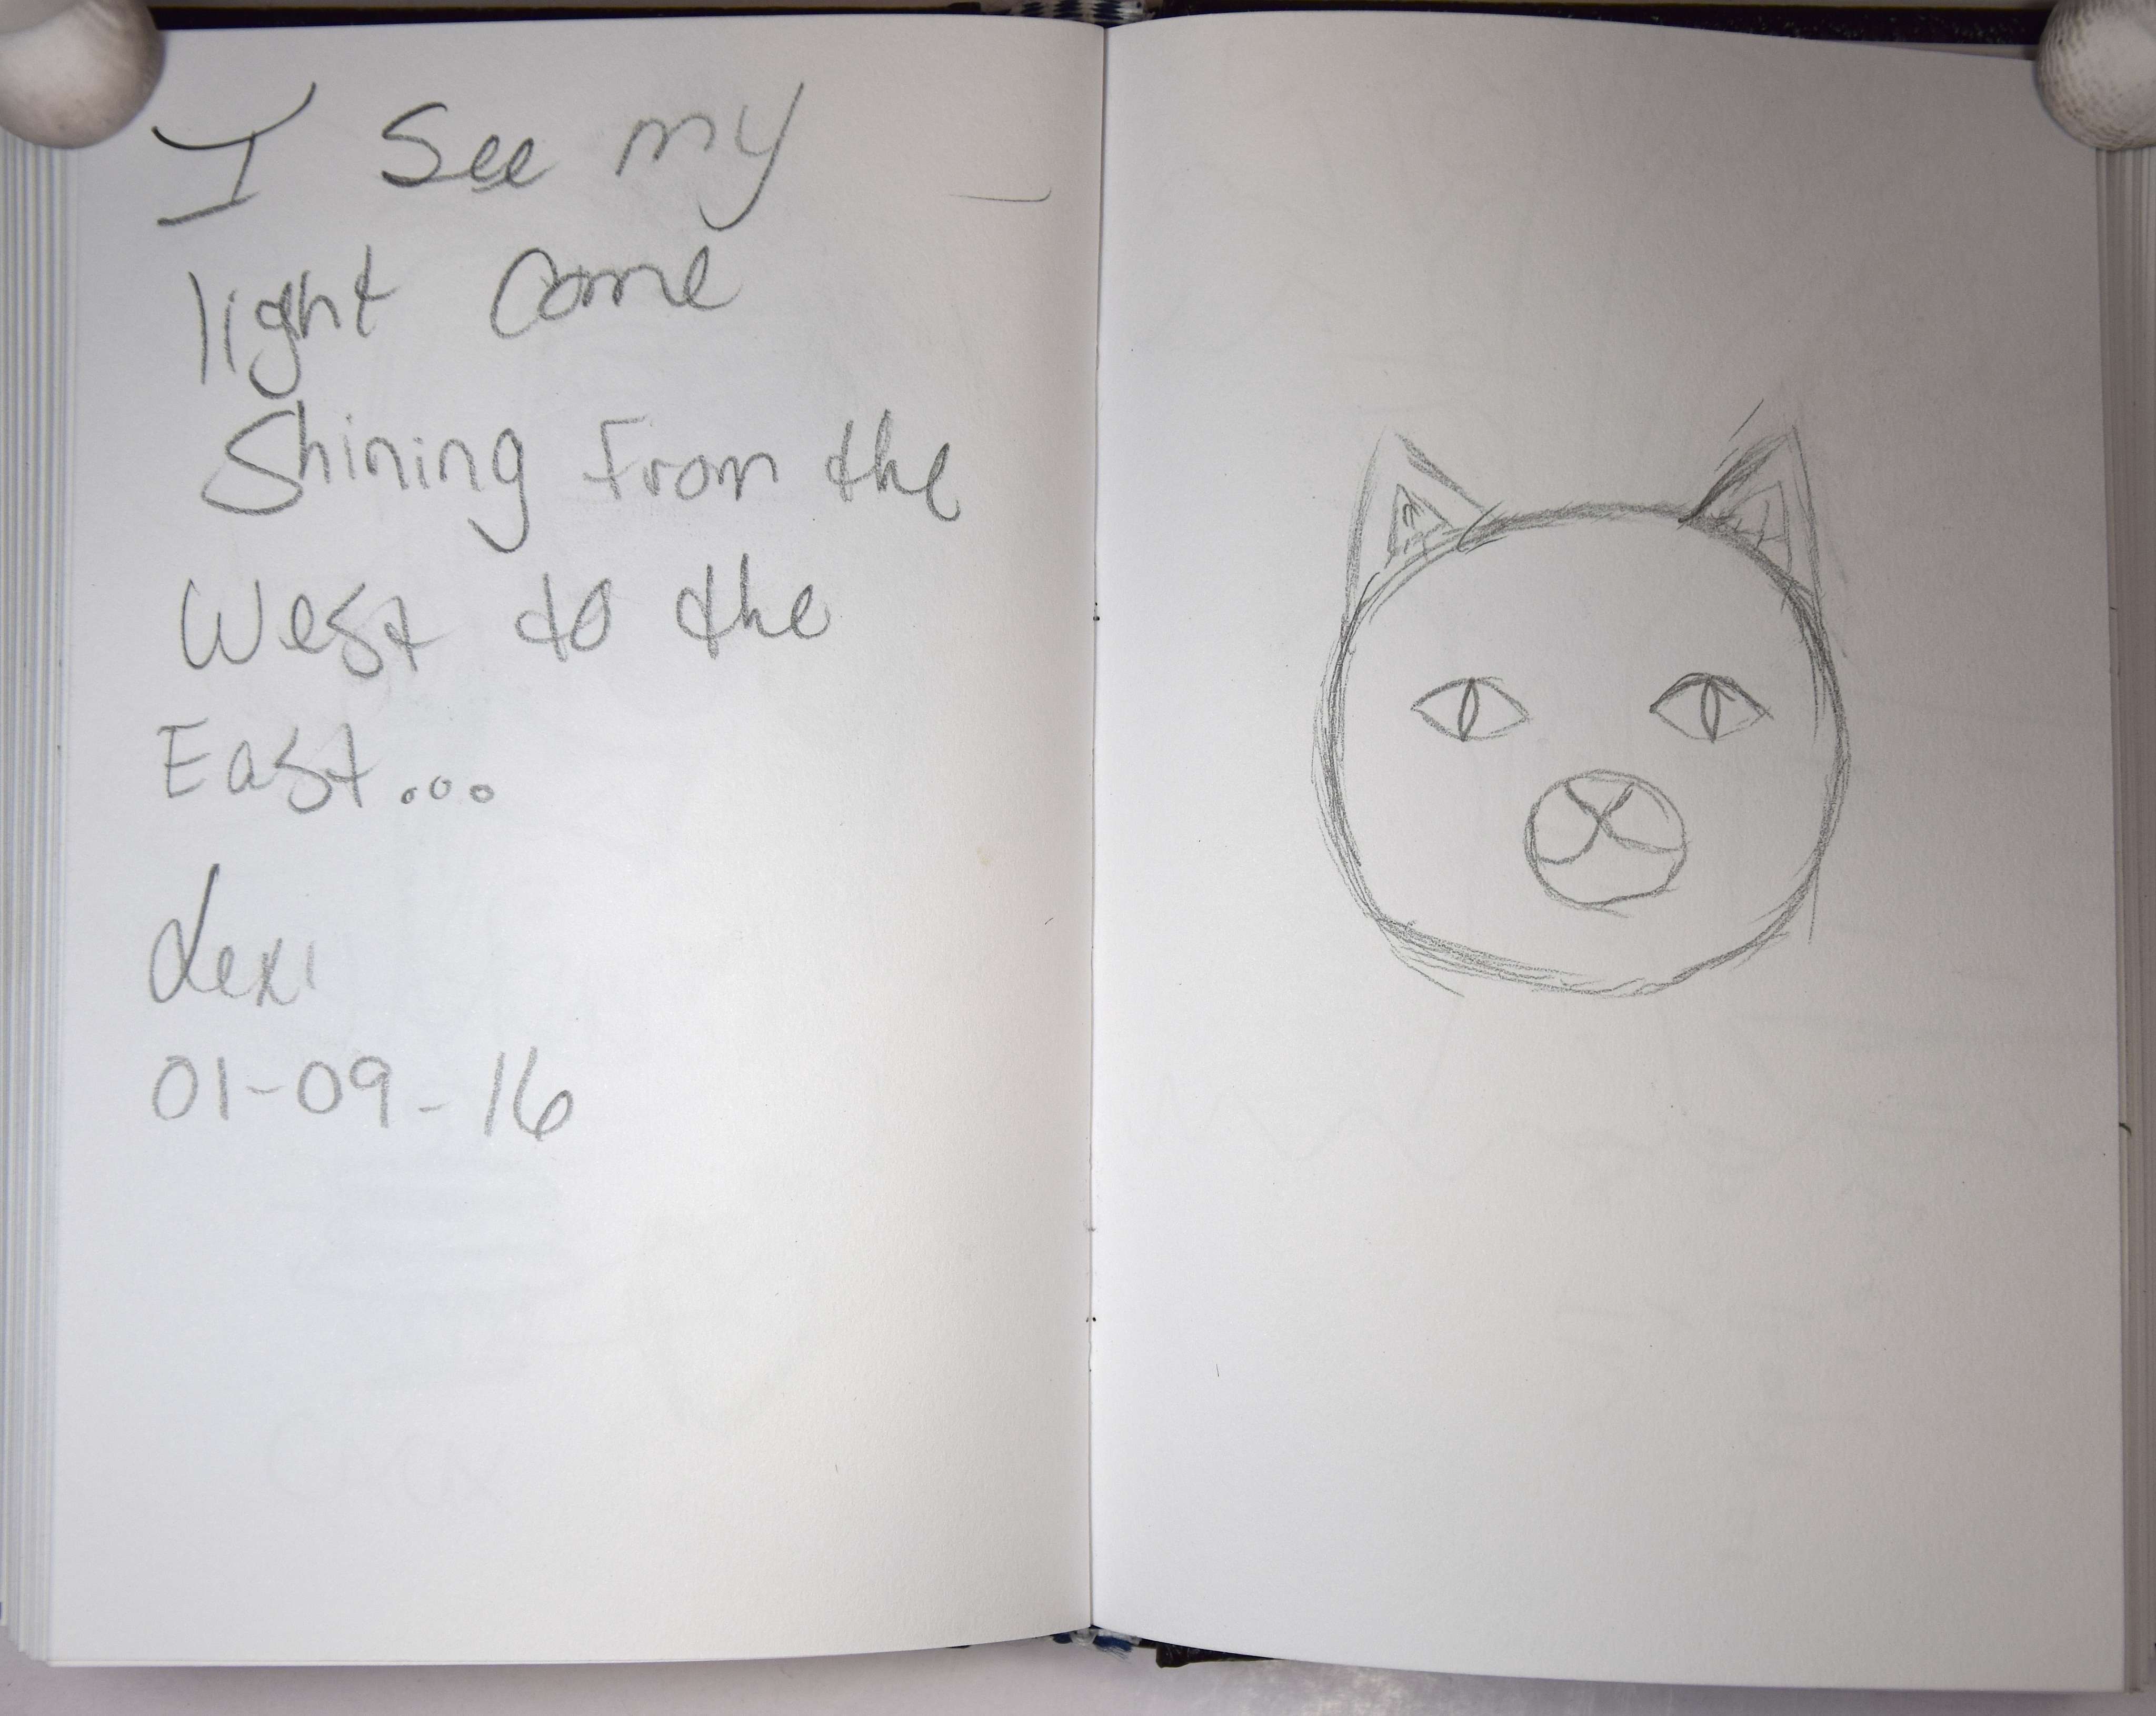 I See my
light come
Shining from the
West to the
East...
Lexi
01-09-16